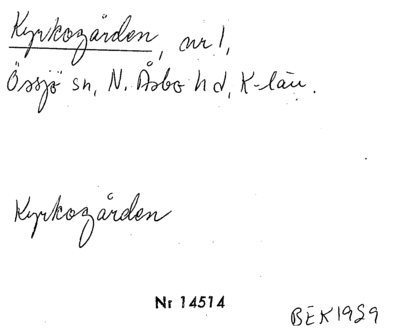 Kyrkogården, nr 1,
Össjö sn, N. Åsbo hd, K-län.
Kyrkogården
Nr 14514
BEK1989